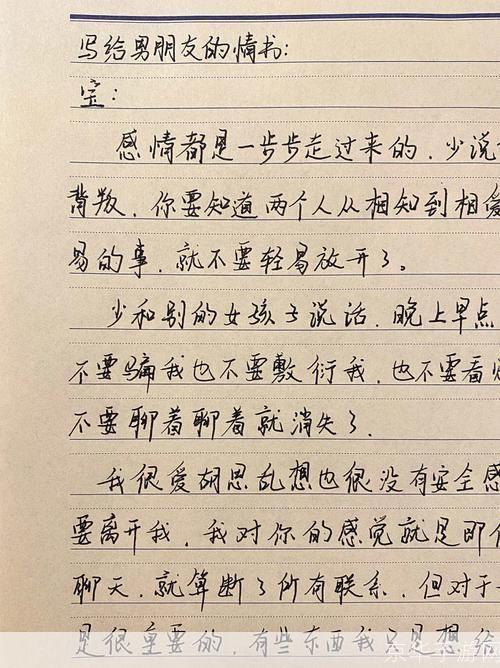 写给男朋友的情书：
宝：
感情都是一步步走过来的，少说
背叛，你要知道两个人从相知到相爱
易的事，就不要轻易放开了。
少和别的女孩子说话，晚上早点
不要骗我也不要敷衍我，也不要看
不要聊着聊着就消失了，
我很爱胡思乱想也很没有安全感
要离开我，我对你的感觉就是即
聊天，就算断了所有联系，但对于
是很重要的，有些东西我只是想给